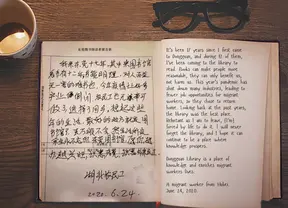 东莞图书馆读者留言表
我来东莞十七年,其中来图书馆
看书有十二年,书能明理,对人百益
无一害的唯书也,今年疫情让好多
产业倒闭,农民工也无事可
做了,选择了回乡,想起这些
年的生活,最好的地方就是图
书馆了,虽万般不舍,然生活所迫,
余生永不忘你,东莞图书馆,愿你
越办越兴旺,识惠东莞,识惠外来
湖北农民工
2020.6.24
It's been 17 years since I first came
to Dongguan, and during 12 of them,
I've been coming to the library to
read. Books can make people more
reasonable, they can only benefit us,
not harm us. This year's pandemic has
shut down many industries, leading to
fewer job opportunities for migrant
workers, so they chose to return
home. Looking back at the past years,
the library was the best place.
Reluctant as I am to leave, I'm
forced by life to do it. I will never
forget the library, and I hope it can
continue to be a place where
knowledge prospers.
Dongguan Library is a place of
knowledge and enriches migrant
workers' lives.
A migrant worker from Hubei
June 24, 2020